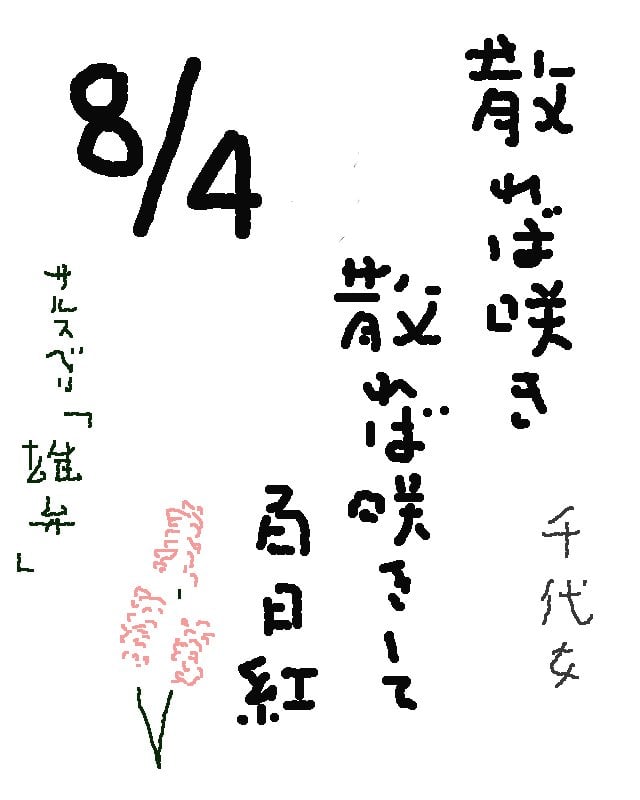 8/4
散れば咲き
散れば咲きして
百日紅
千代女
サルスベリ「雄弁」